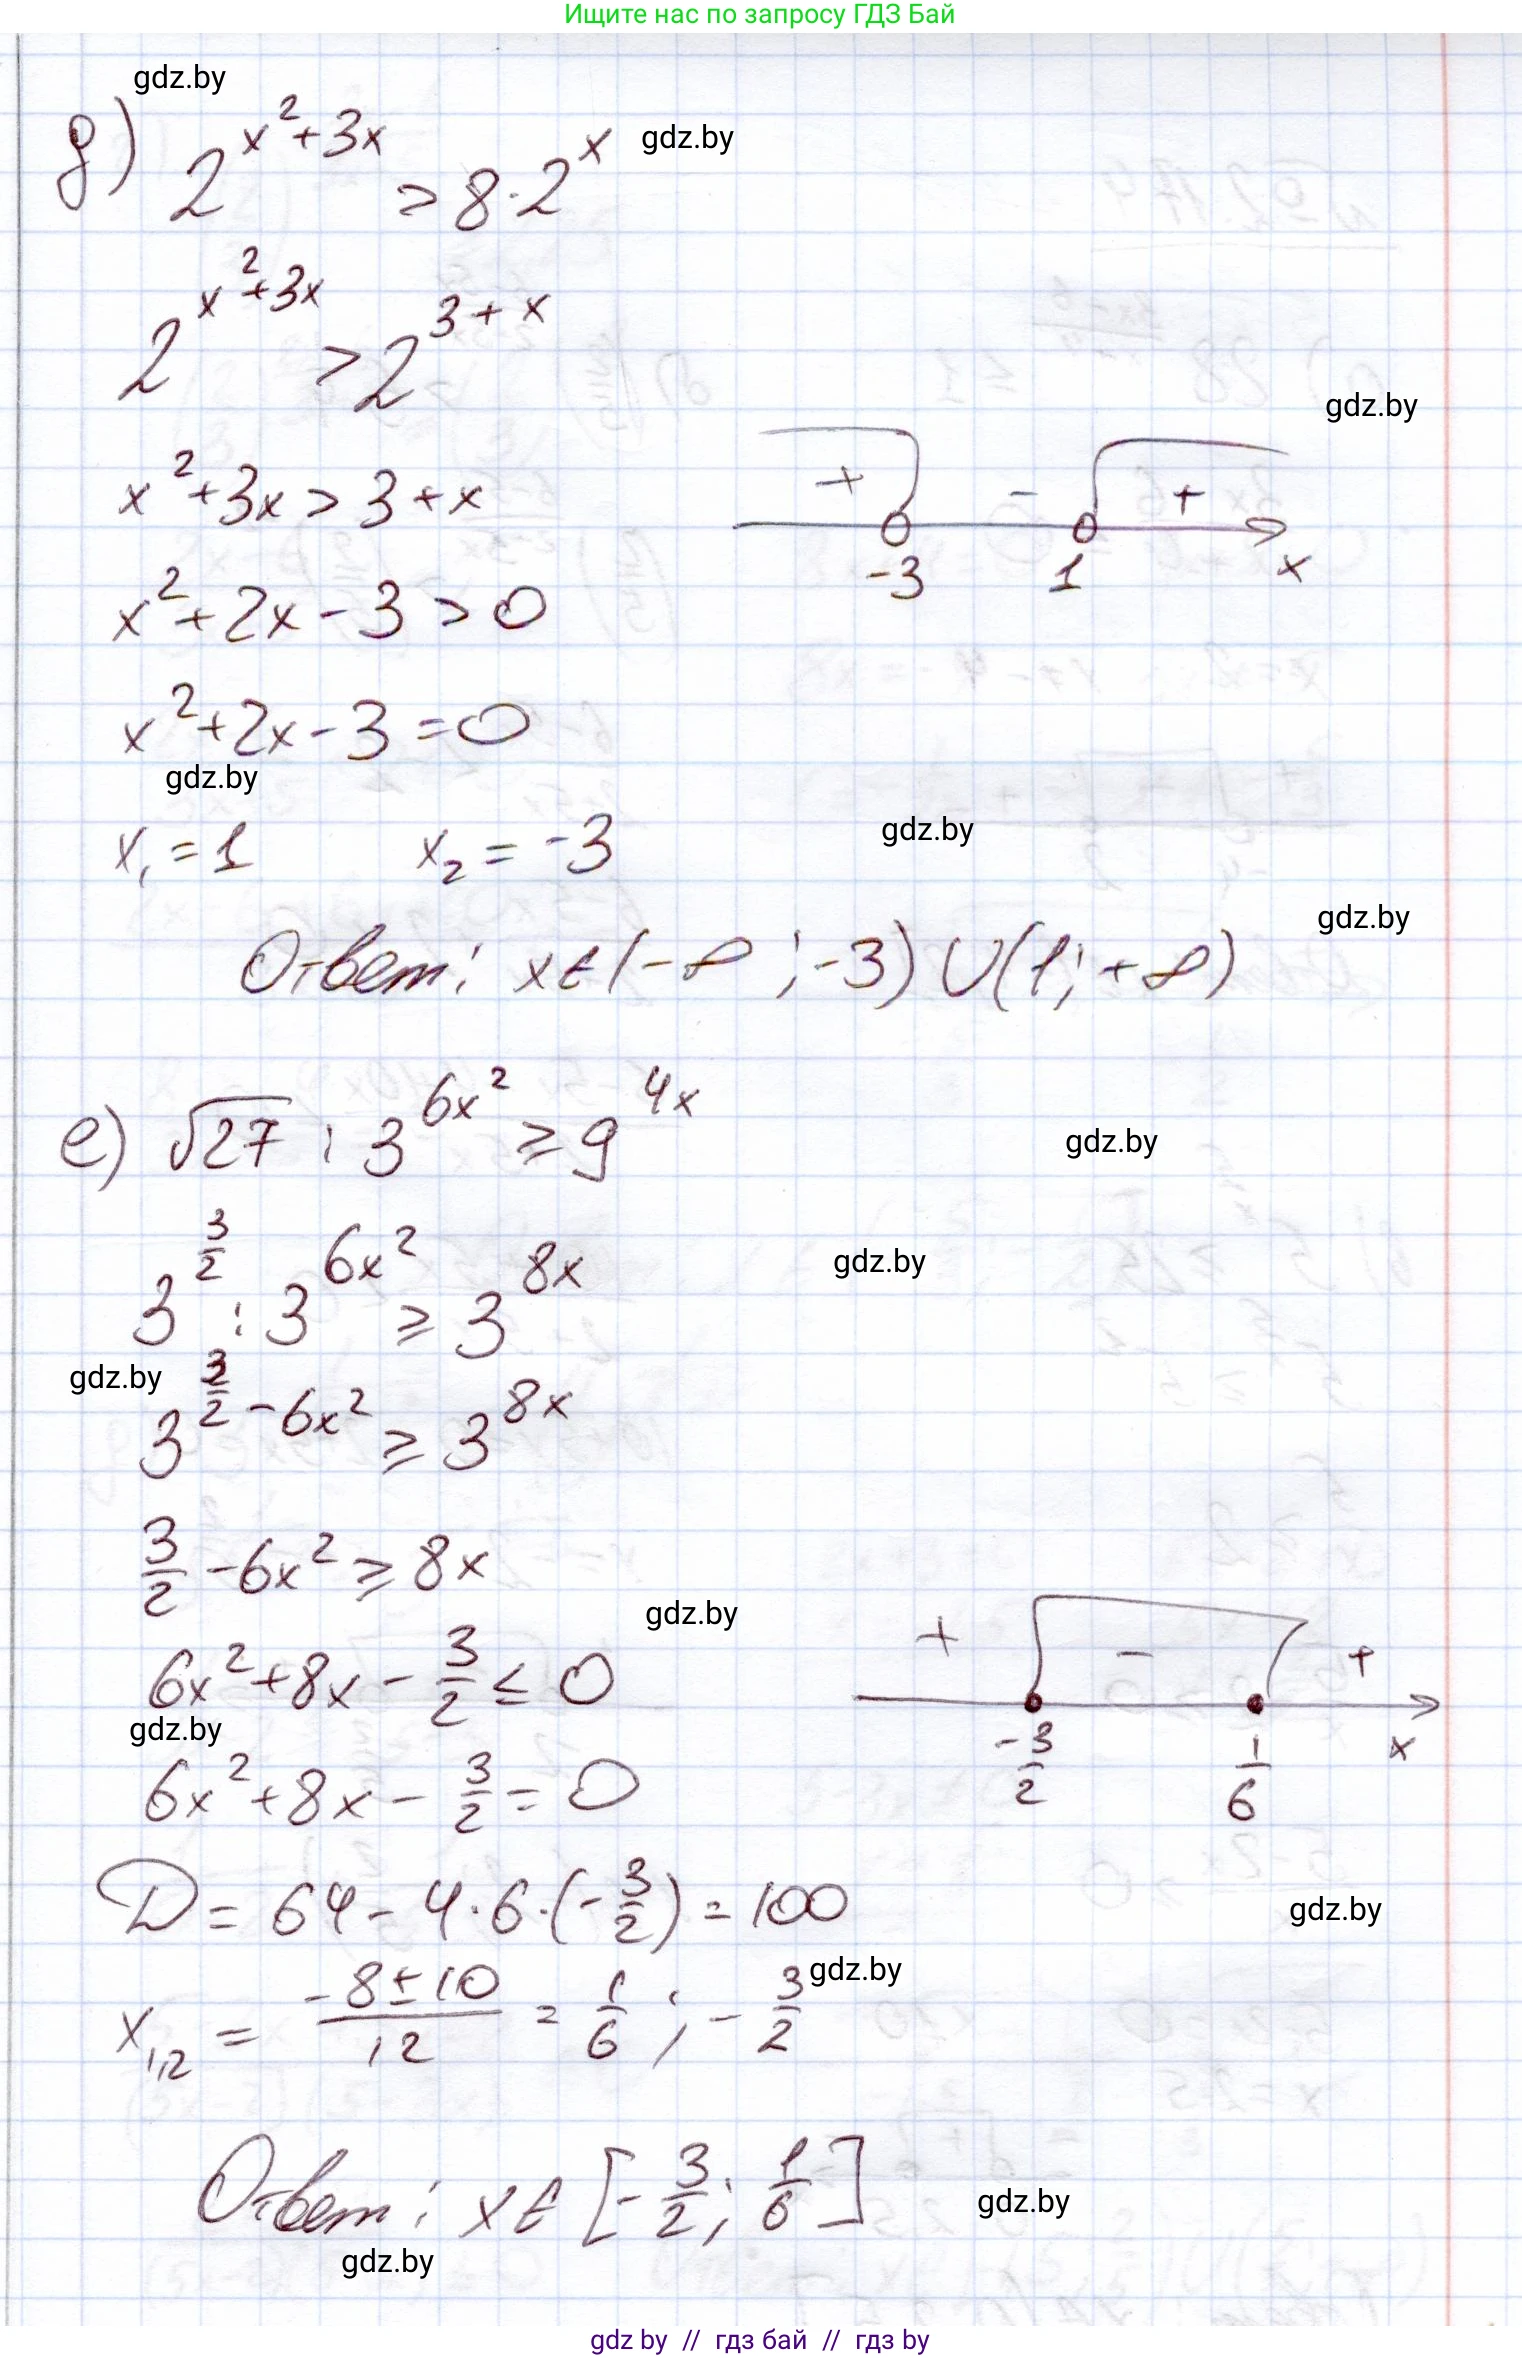 Ищите нас по запросу ГДЗ Бай
gdz.by
д) 2^(x²+3x) > 8·2^x
gdz.by
2^(x²+3x) > 2^(3+x)
gdz.by
x²+3x > 3+x
+ - +
-3 1 x
x²+2x-3>0
x²+2x-3=0
gdz.by
gdz.by
x₁=1 x₂=-3
gdz.by
Ответ: x∈(-∞;-3)∪(1;+∞)
е) √27 : 3^(6x²) ≥ 9^(4x)
gdz.by
3^(3/2) : 3^(6x²) ≥ 3^(8x)
gdz.by
gdz.by
3^(3/2-6x²) ≥ 3^(8x)
3/2-6x² ≥ 8x
gdz.by
+ - +
-3/2 1/6 x
6x²+8x-3/2 ≤ 0
gdz.by
6x²+8x-3/2=0
D=64-4·6·(-3/2)=100
gdz.by
gdz.by
x₁,₂ = (-8±10)/12 = 1/6; -3/2
Ответ: x∈[-3/2; 1/6]
gdz.by
gdz.by
gdz by // гдз бай // гдз by